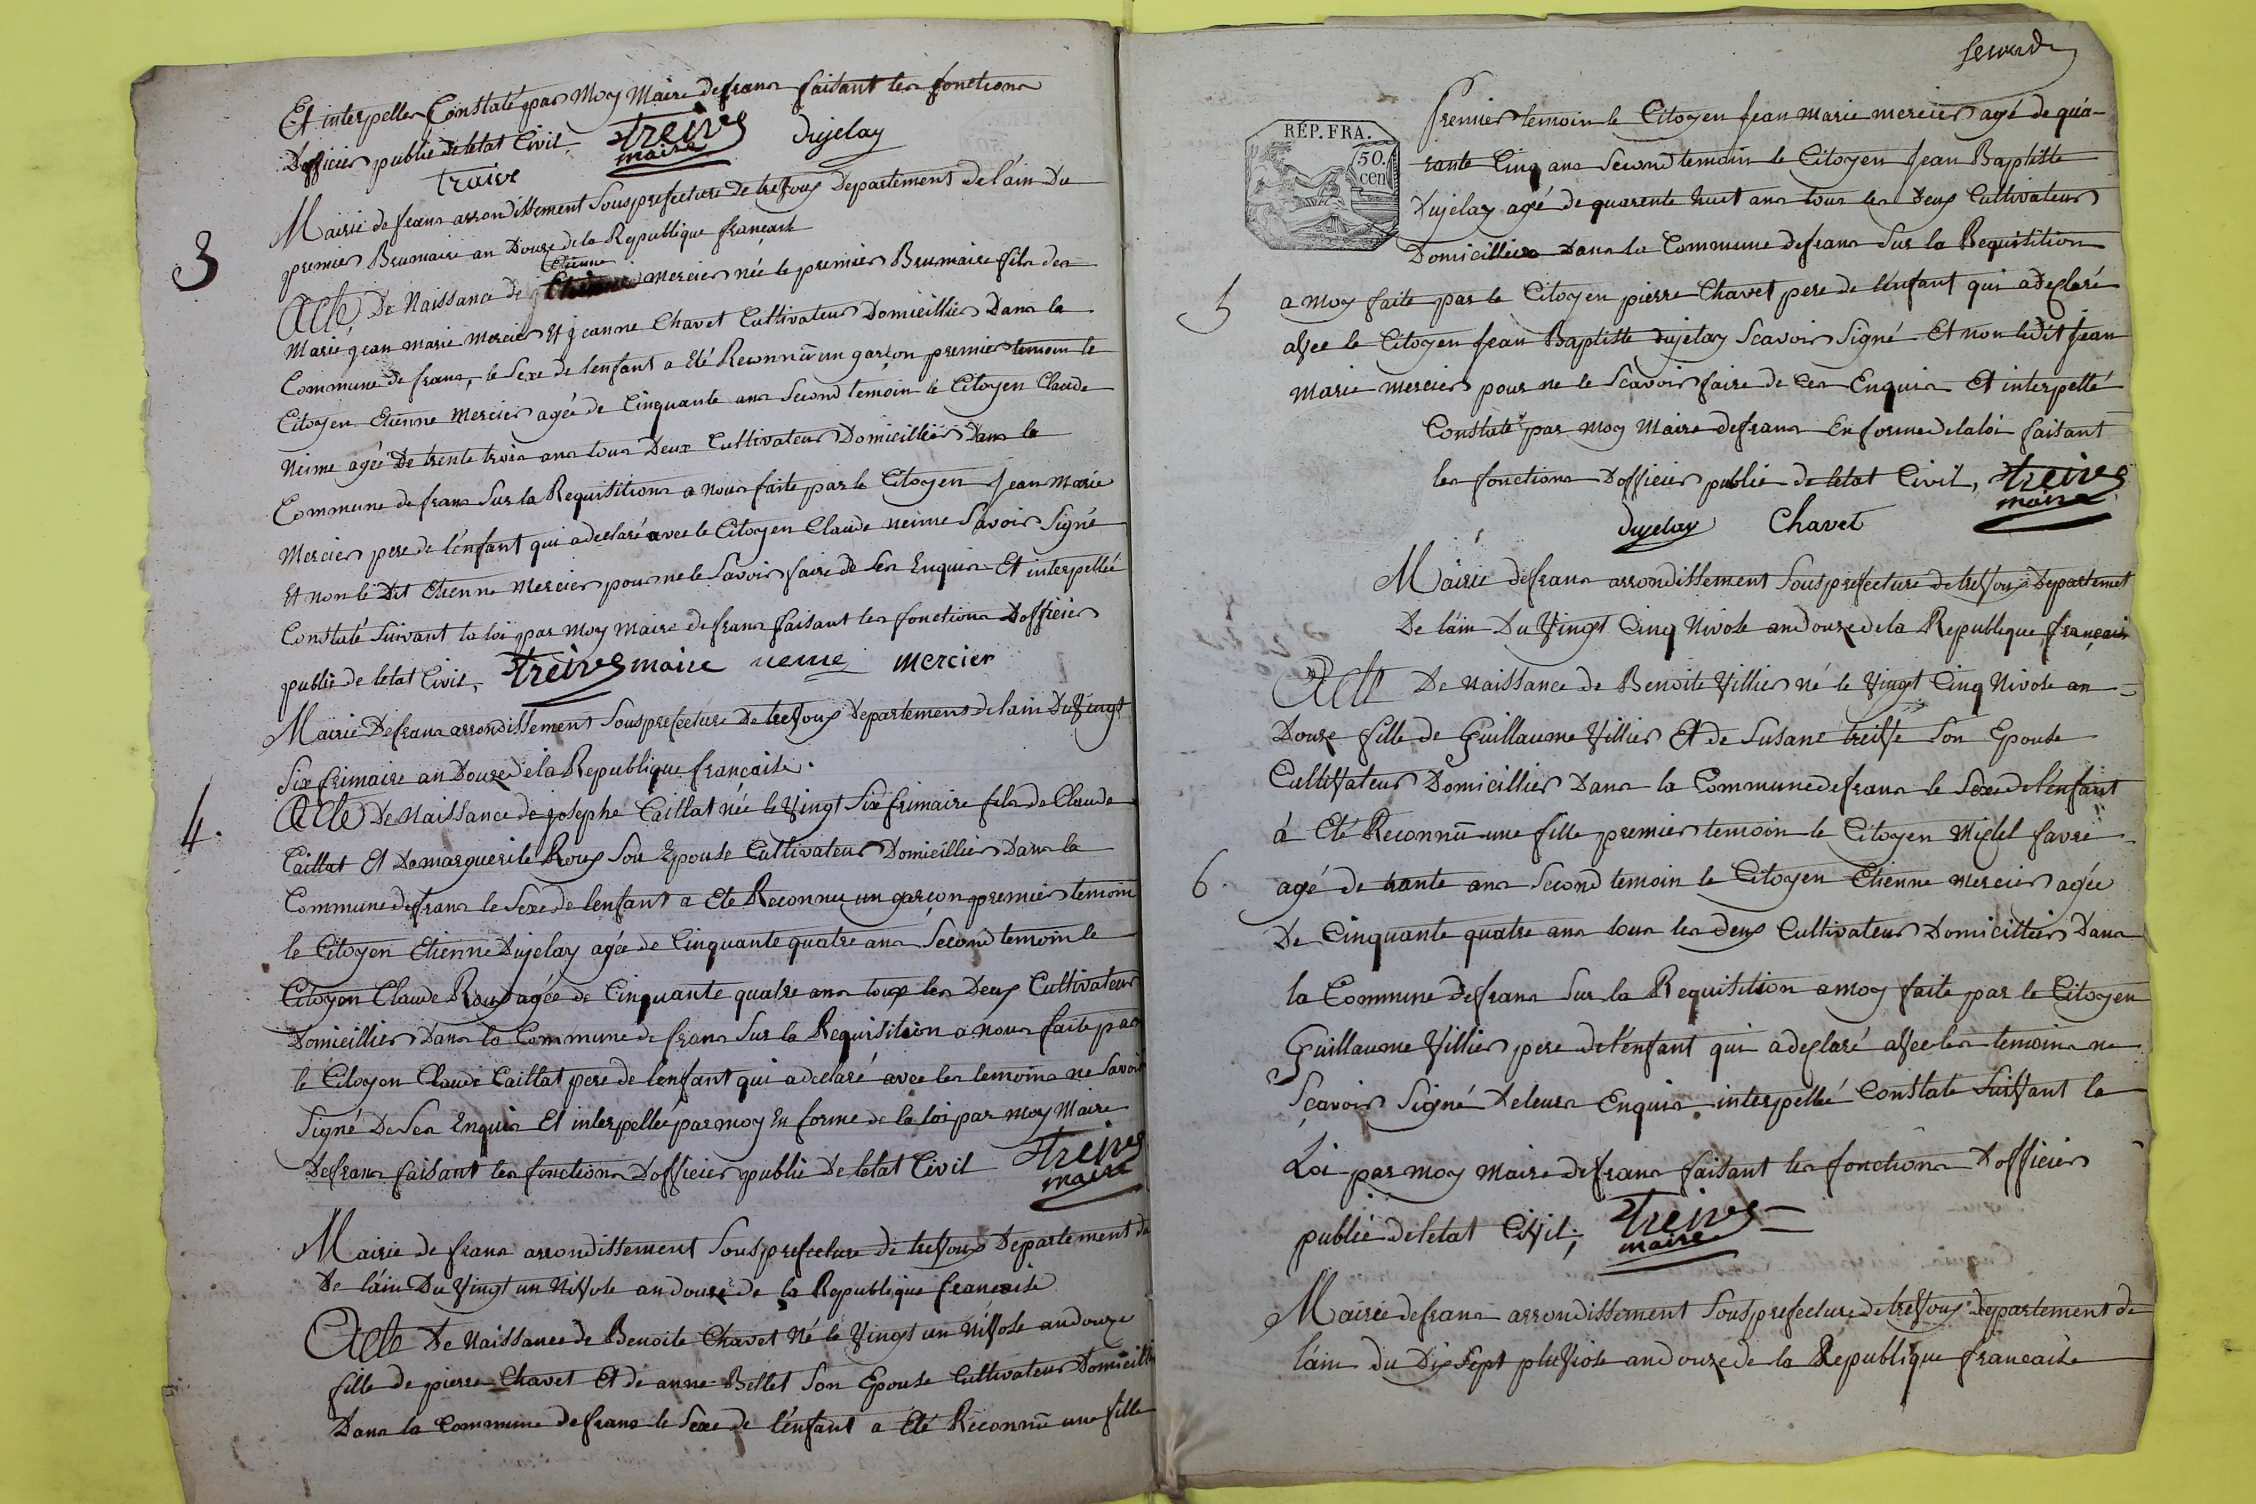 Et interpelles Constaté par Moy Maire defrans faisant les fonctions
Dofficier public de letat Civil, Treive
maire
Dujelay
traive
3
Mairie de frans arrondissement Sousprefecture de treVoux Departement de lain Du
premier Brumaire an Douze de la Republique française
etienne
Acte De Naissance de mercier née le premier Brumaire fils des
Marie jean marie Mercier Et jeanne Chavet Cultivateur Domicillier Dans la
Commune de frans, le Sexe de lenfant a Eté Reconnü un garçon premier temoin le
Citoyen Etienne Mercier agée de Cinquante ans Second temoin le Citoyen Claude
Neime agée De trente trois ans tous Deux Cultivateur Domicillier Dans la
Commune de frans Sur la Requisitions a nous faite par le Citoyen jean Marie
Mercier pere de lenfant qui a declaré avec le Citoyen Claude neime Savoir Signé
Et non le Dit Etienne Mercier pour ne le Savoir faire de Ses Enquis Et interpellée
Constaté Suivant la loi par moy maire de frans faisant les fonctions Dofficier
public de letat Civil, Treive maire neme mercier
Mairie Defrans arrondissement Sousprefecture De treVoux Departement de lain DuVingt
Six frimaire an Douze de la Republique française.
4.
Acte De Naissance de josephe Caillat née le Vingt Six frimaire fils de Claude
Caillat Et De marguerite Roux Son Epouse Cultivateur Domicillier Dans la
Commune defrans le Sexe de lenfant a Eté Reconnu un garçon premier temoin
le Citoyen Etienne Dujelay agée de Cinquante quatre ans Second temoin le
Citoyen Claude Roux agée de Cinquante quatre ans toux les Deux Cultivateur
Domicillier Dans la Commune de frans Sur la Requisition a nous faite par
le Citoyen Claude Caillat pere de lenfant qui a declaré avec les temoins ne Savoir
Signé De Ses Enquis Et interpellée par moy En forme de la loi par moy Maire
Defrans faisant les fonctions Dofficier public De letat Civil Treive
maire
Mairie de frans arrondissement Sousprefecture de treVoux Departement de
De lain Du Vingt un NiVose an douze de la Republique francaise
Acte De Naissance de Benoite Chavet Né le Vingt un NiVose an douze
fille de pierre Chavet Et de anne Billet Son Epouse Cultivateur Domicilli
Dans la Commune defrans le Sexe de lenfant a Eté Reconnü une fille
second
RÉP. FRA.
50.
cen
premier temoin le Citoyen jean marie mercier agé de qua-
rante Cinq ans Second temoin le Citoyen jean Baptiste
Dujelay agé de quarente huit ans tous les Deux Cultivateur
Domicillier Dans la Commune defrans Sur la Requisition
5
a moy faite par le Citoyen pierre Chavet pere de lenfant qui a Declaré
aVec le Citoyen jean Baptiste Dujelay Scavoir Signé Et non ledit jean
Marie mercier pour ne le Scavoir faire de Ces Enquis Et interpellé
Constaté par moy Maire defrans En forme de la loi faisant
les fonctions Dofficier public de letat Civil, Treive
maire
Dujelay Chavet
Mairie defrans arrondissement Sousprefecture de treVoux Departemet
De lain Du Vingt Cinq Nivose an douze de la Republique français
Acte De Naissance de Benoite Villier né le Vingt Cinq Nivose an
Douze fille de Guillaume Villier Et de Susane treiVe Son Epouse
CultiVateur Domicillier Dans la Commune defrans le Sexe de lenfant
à Eté Reconnü une fille premier temoin le Citoyen Michel favre
6.
agé de trante ans Second temoin le Citoyen Etienne mercier agée
De Cinquante quatre ans tous les deux Cultivateur Domicillier Dans
la Commune Defrans Sur la Requisition a moy faite par le Citoyen
Guillaume Villier pere de lenfant qui a declaré aVec les temoins ne
Sçavoir Signé De leurs Enquis interpellé Constate SuiVant la
Loi par moy Maire defrans faisant les fonctions Dofficier
public de letat CiVil, Treive
maire
Mairie defrans arrondissement Sousprefecture de treVoux Departement de
lain du Dix Sept pluViose an douze de la Republique francaise